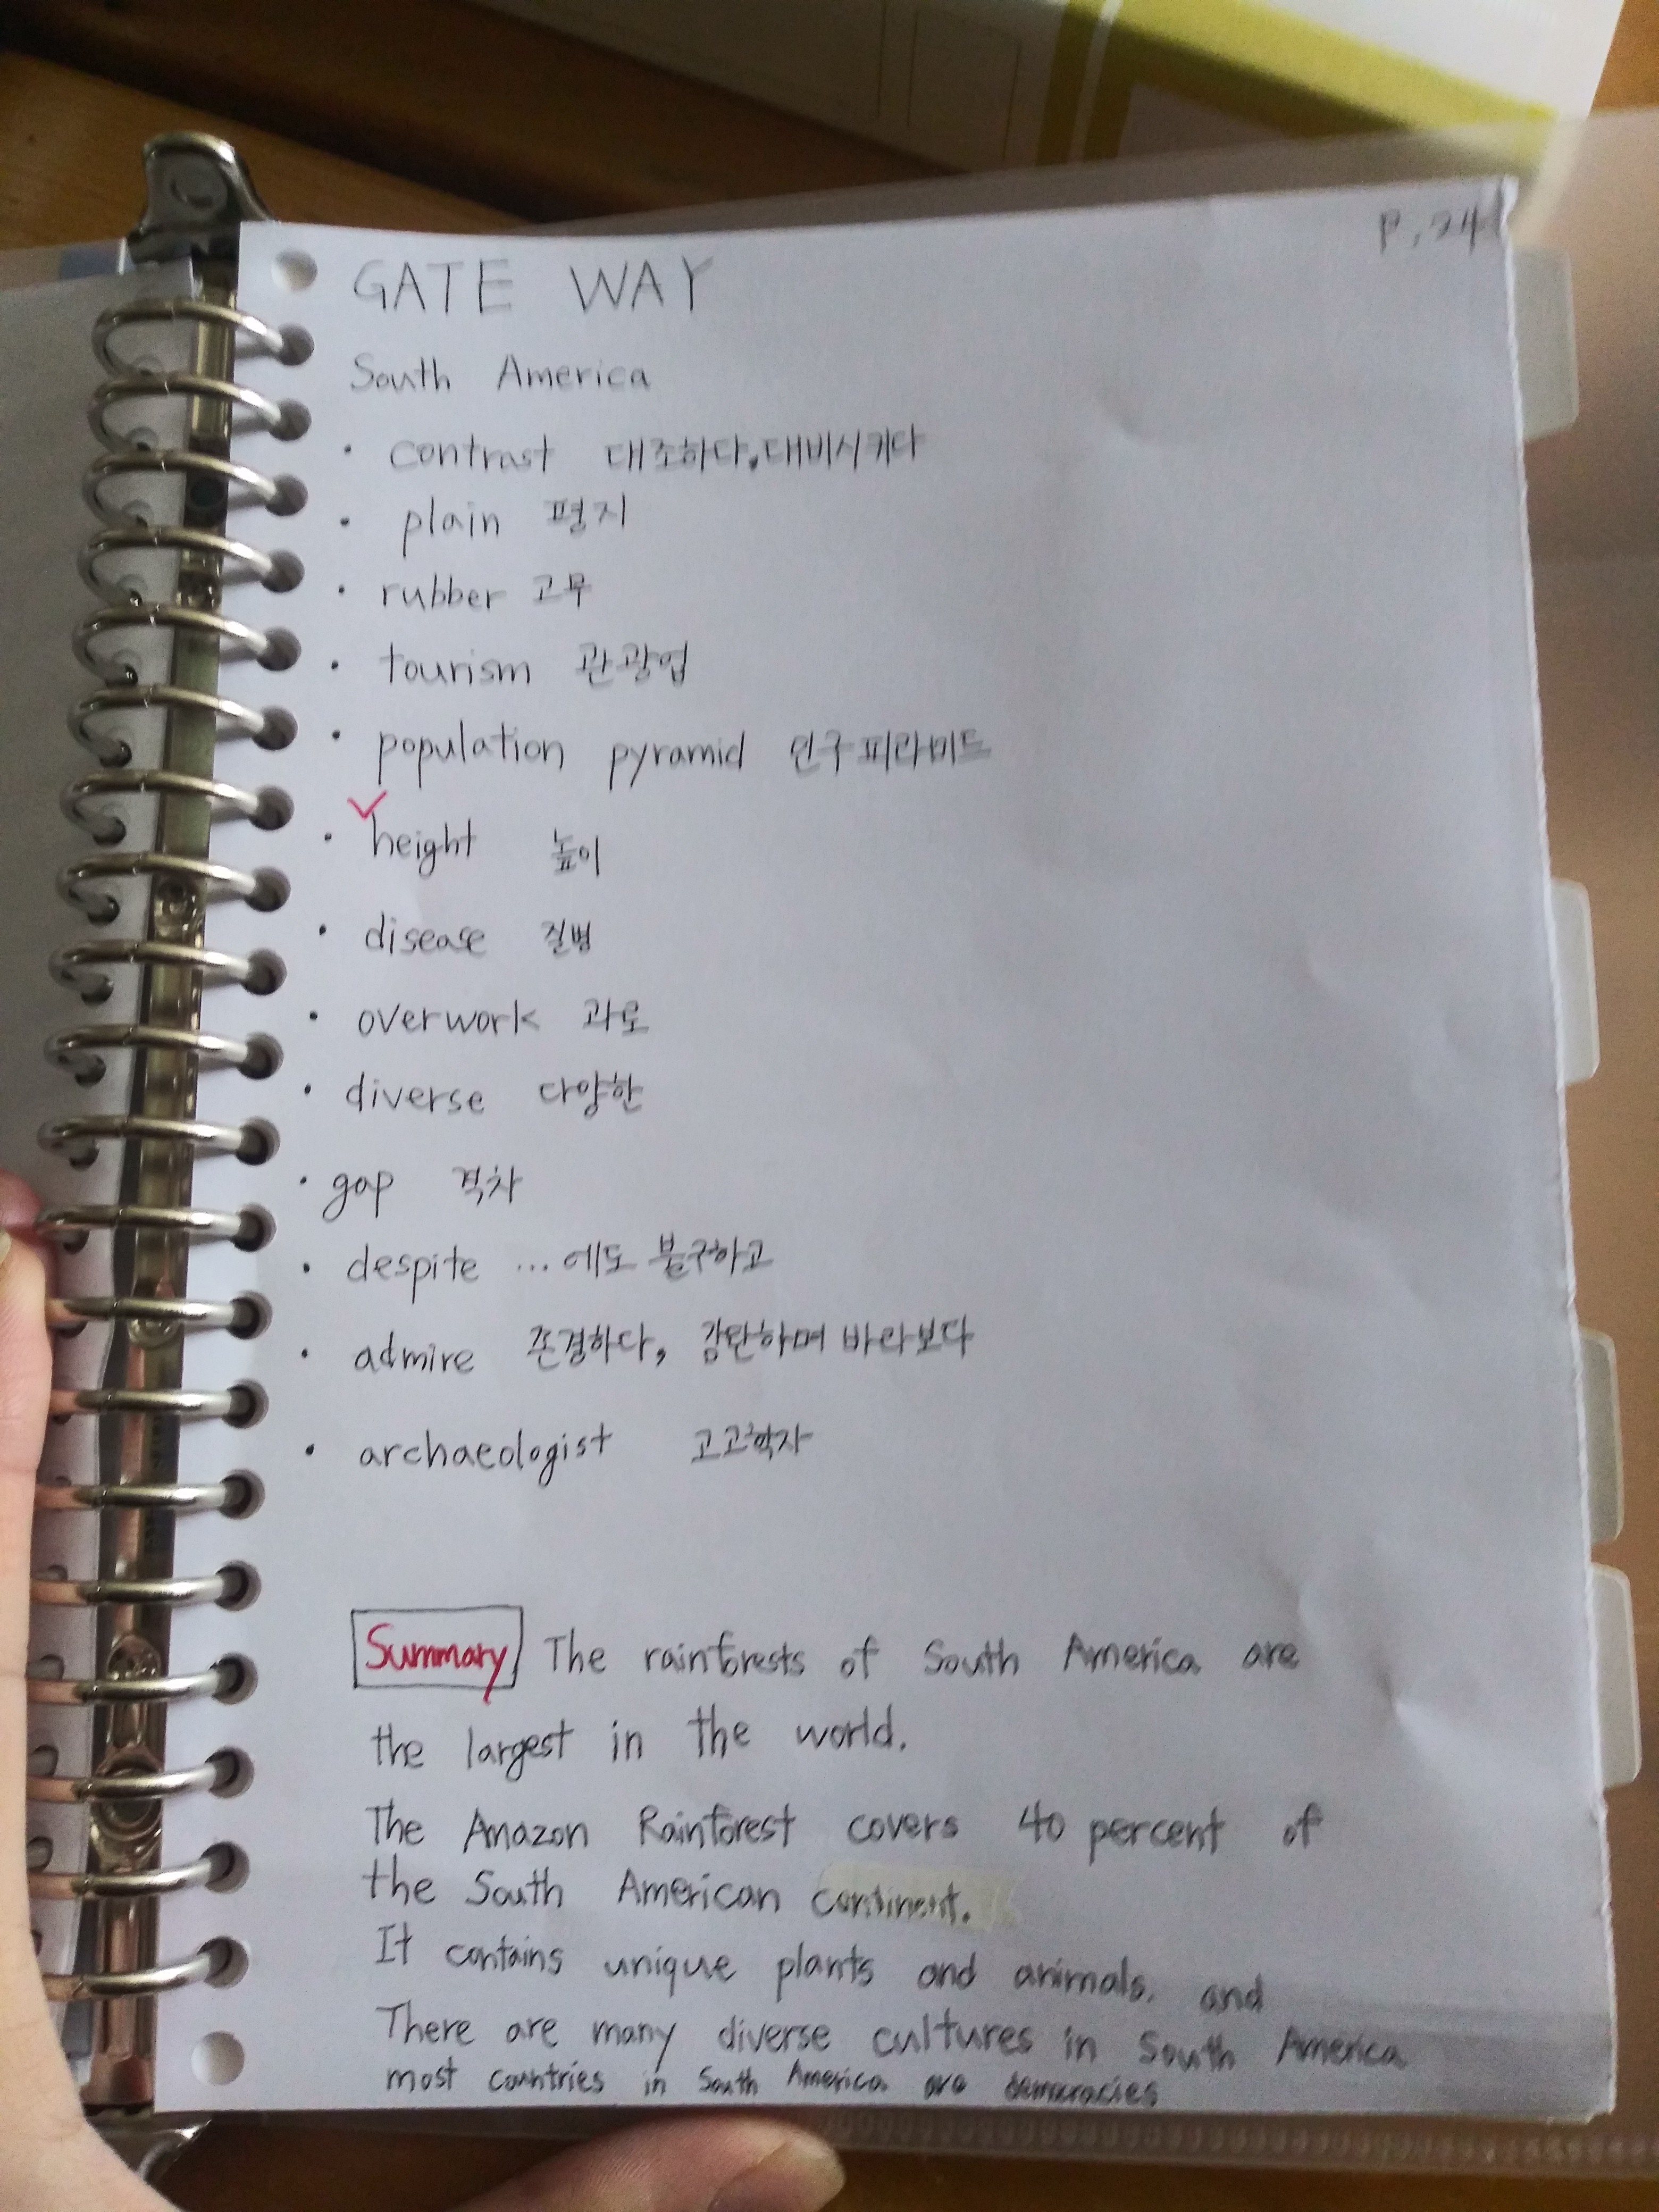 P.24
GATE WAY
South America
· contrast 대조하다,대비시키다
· plain 평지
· rubber 고무
· tourism 관광업
· population pyramid 인구피라미드
· height 높이
· disease 질병
· overwork 과로
· diverse 다양한
· gap 격차
· despite ...에도 불구하고
· admire 존경하다, 감탄하며 바라보다
· archaeologist 고고학자
Summary The rainforests of South America are
the largest in the world.
The Amazon Rainforest covers 40 percent of
the South American continent.
It contains unique plants and animals. and
There are many diverse cultures in South America
most countries in South America are democracies